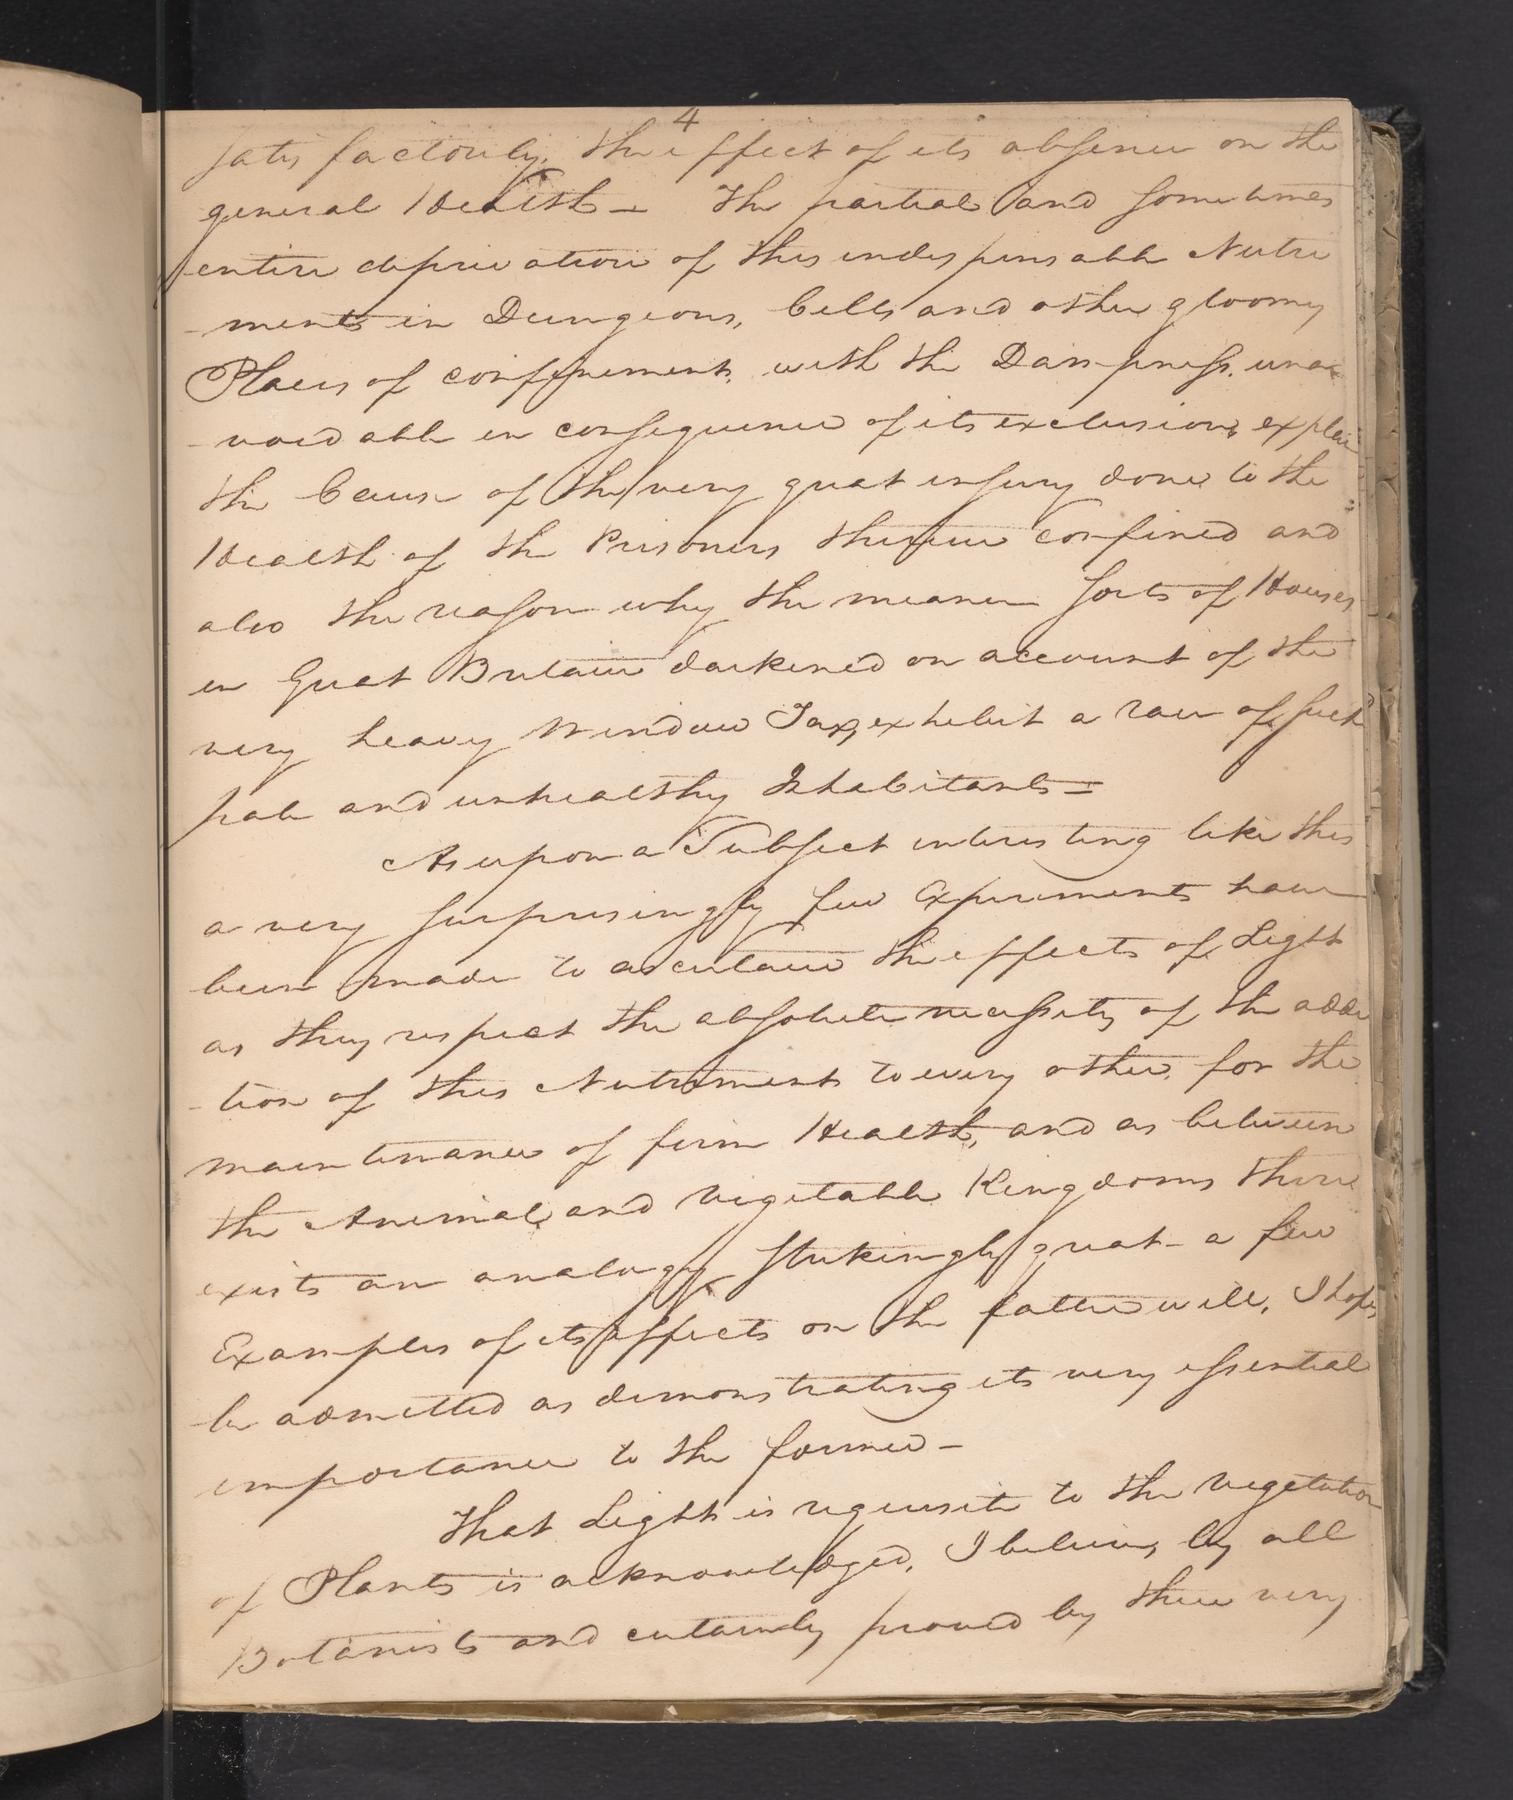 4
satisfactorily, the effect of its absence on the
general Health — The partial and sometimes
entire deprivation of this indispensable Nutri
-ment in Dungeons, Cells and other gloomy
Places of confinement, with the Dampness, una
-voidable in consequence of its exclusion, explain
the Cause of the very great injury done to the
Health of the Prisoners therein confined and
also the reason why the meaner sorts of Houses
in Great Britain darkened on account of the
very heavy Window Tax, exhibit a race of such
pale and unhealthy Inhabitants —
As upon a Subject interesting like this
a very surprisingly few Experiments have
been made to ascertain the effects of Light
as they respect the absolute necessity of the addi
-tion of this Nutriment to every other, for the
maintenance of firm Health, and as between
the Animal, and Vegetable Kingdoms there
exists an analogy strikingly great — a few
Examples of its effects on the latter will, I hope,
be admitted as demonstrating its very essential
importance to the former —
That Light is requisite to the vegetation
of Plants is acknowledged, I believe, by all
Botanists and certainly proved by their very